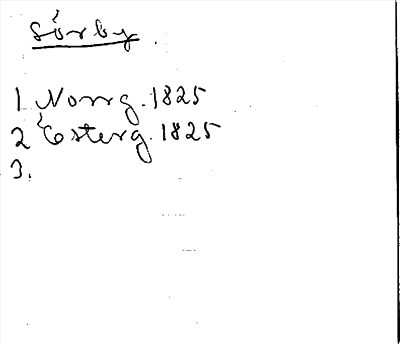 Sörby.
1 Norrg. 1825
2 Österg. 1825
3.